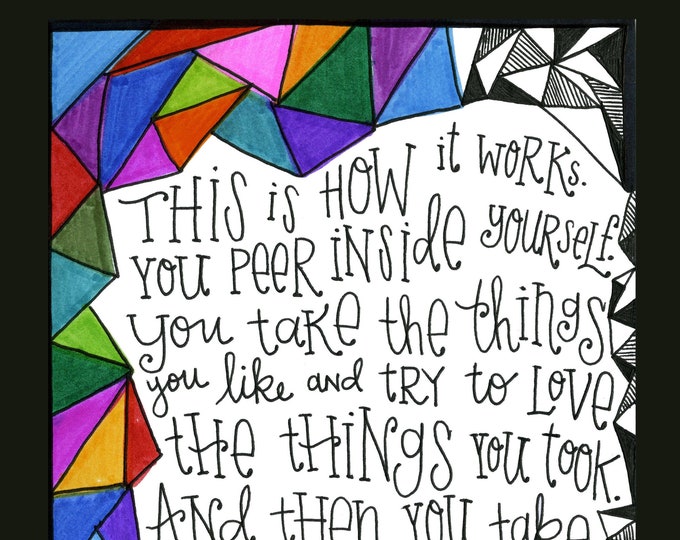 THIS is HOW it WORKS.
YOU PEER iNSiDE YOURSELF.
you take the things
you like and TRY to LOVE
the tHiNGS YOU took.
AND then YOU take